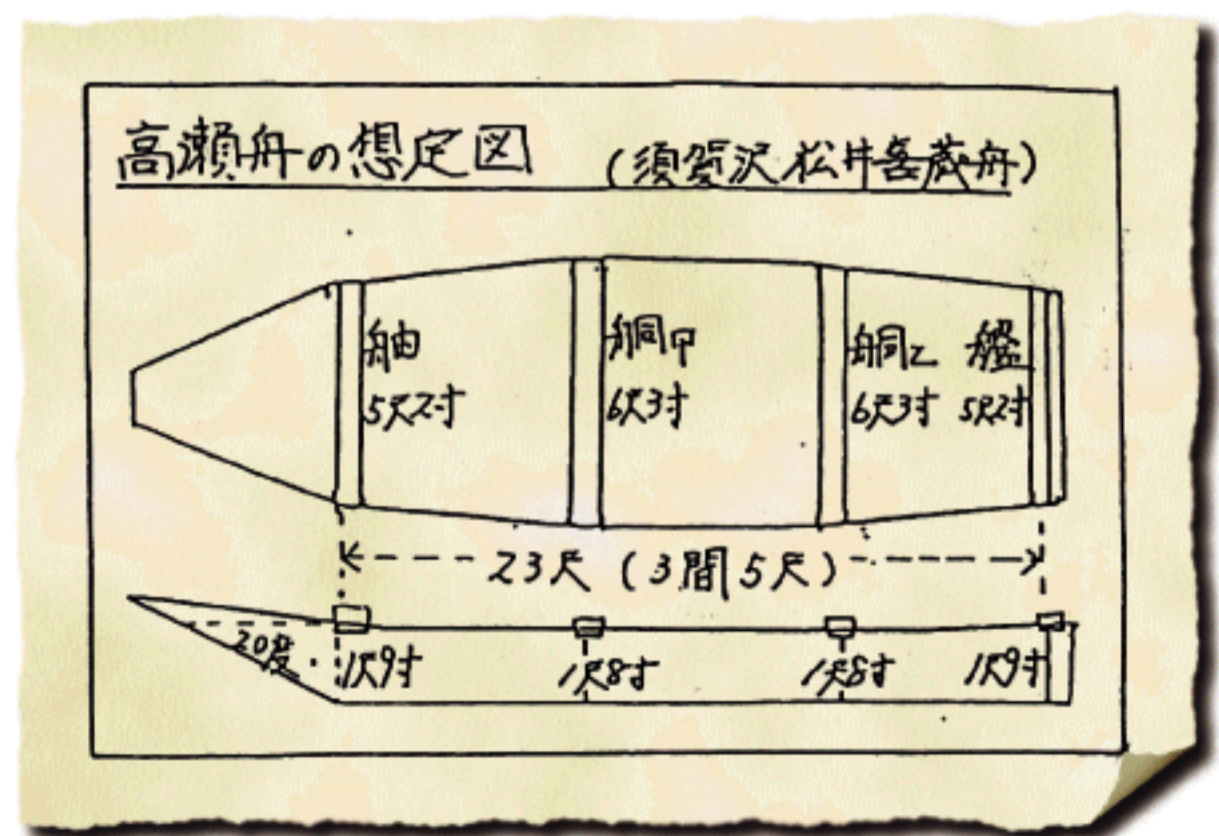 高瀬舟の想定図 (須賀沢松井喜蔵舟)
舳 胴甲 胴乙 艫
5尺2寸 6尺3寸 6尺3寸 5尺2寸
23尺 (3間5尺)
20度
1尺9寸 1尺8寸 1尺8寸 1尺9寸